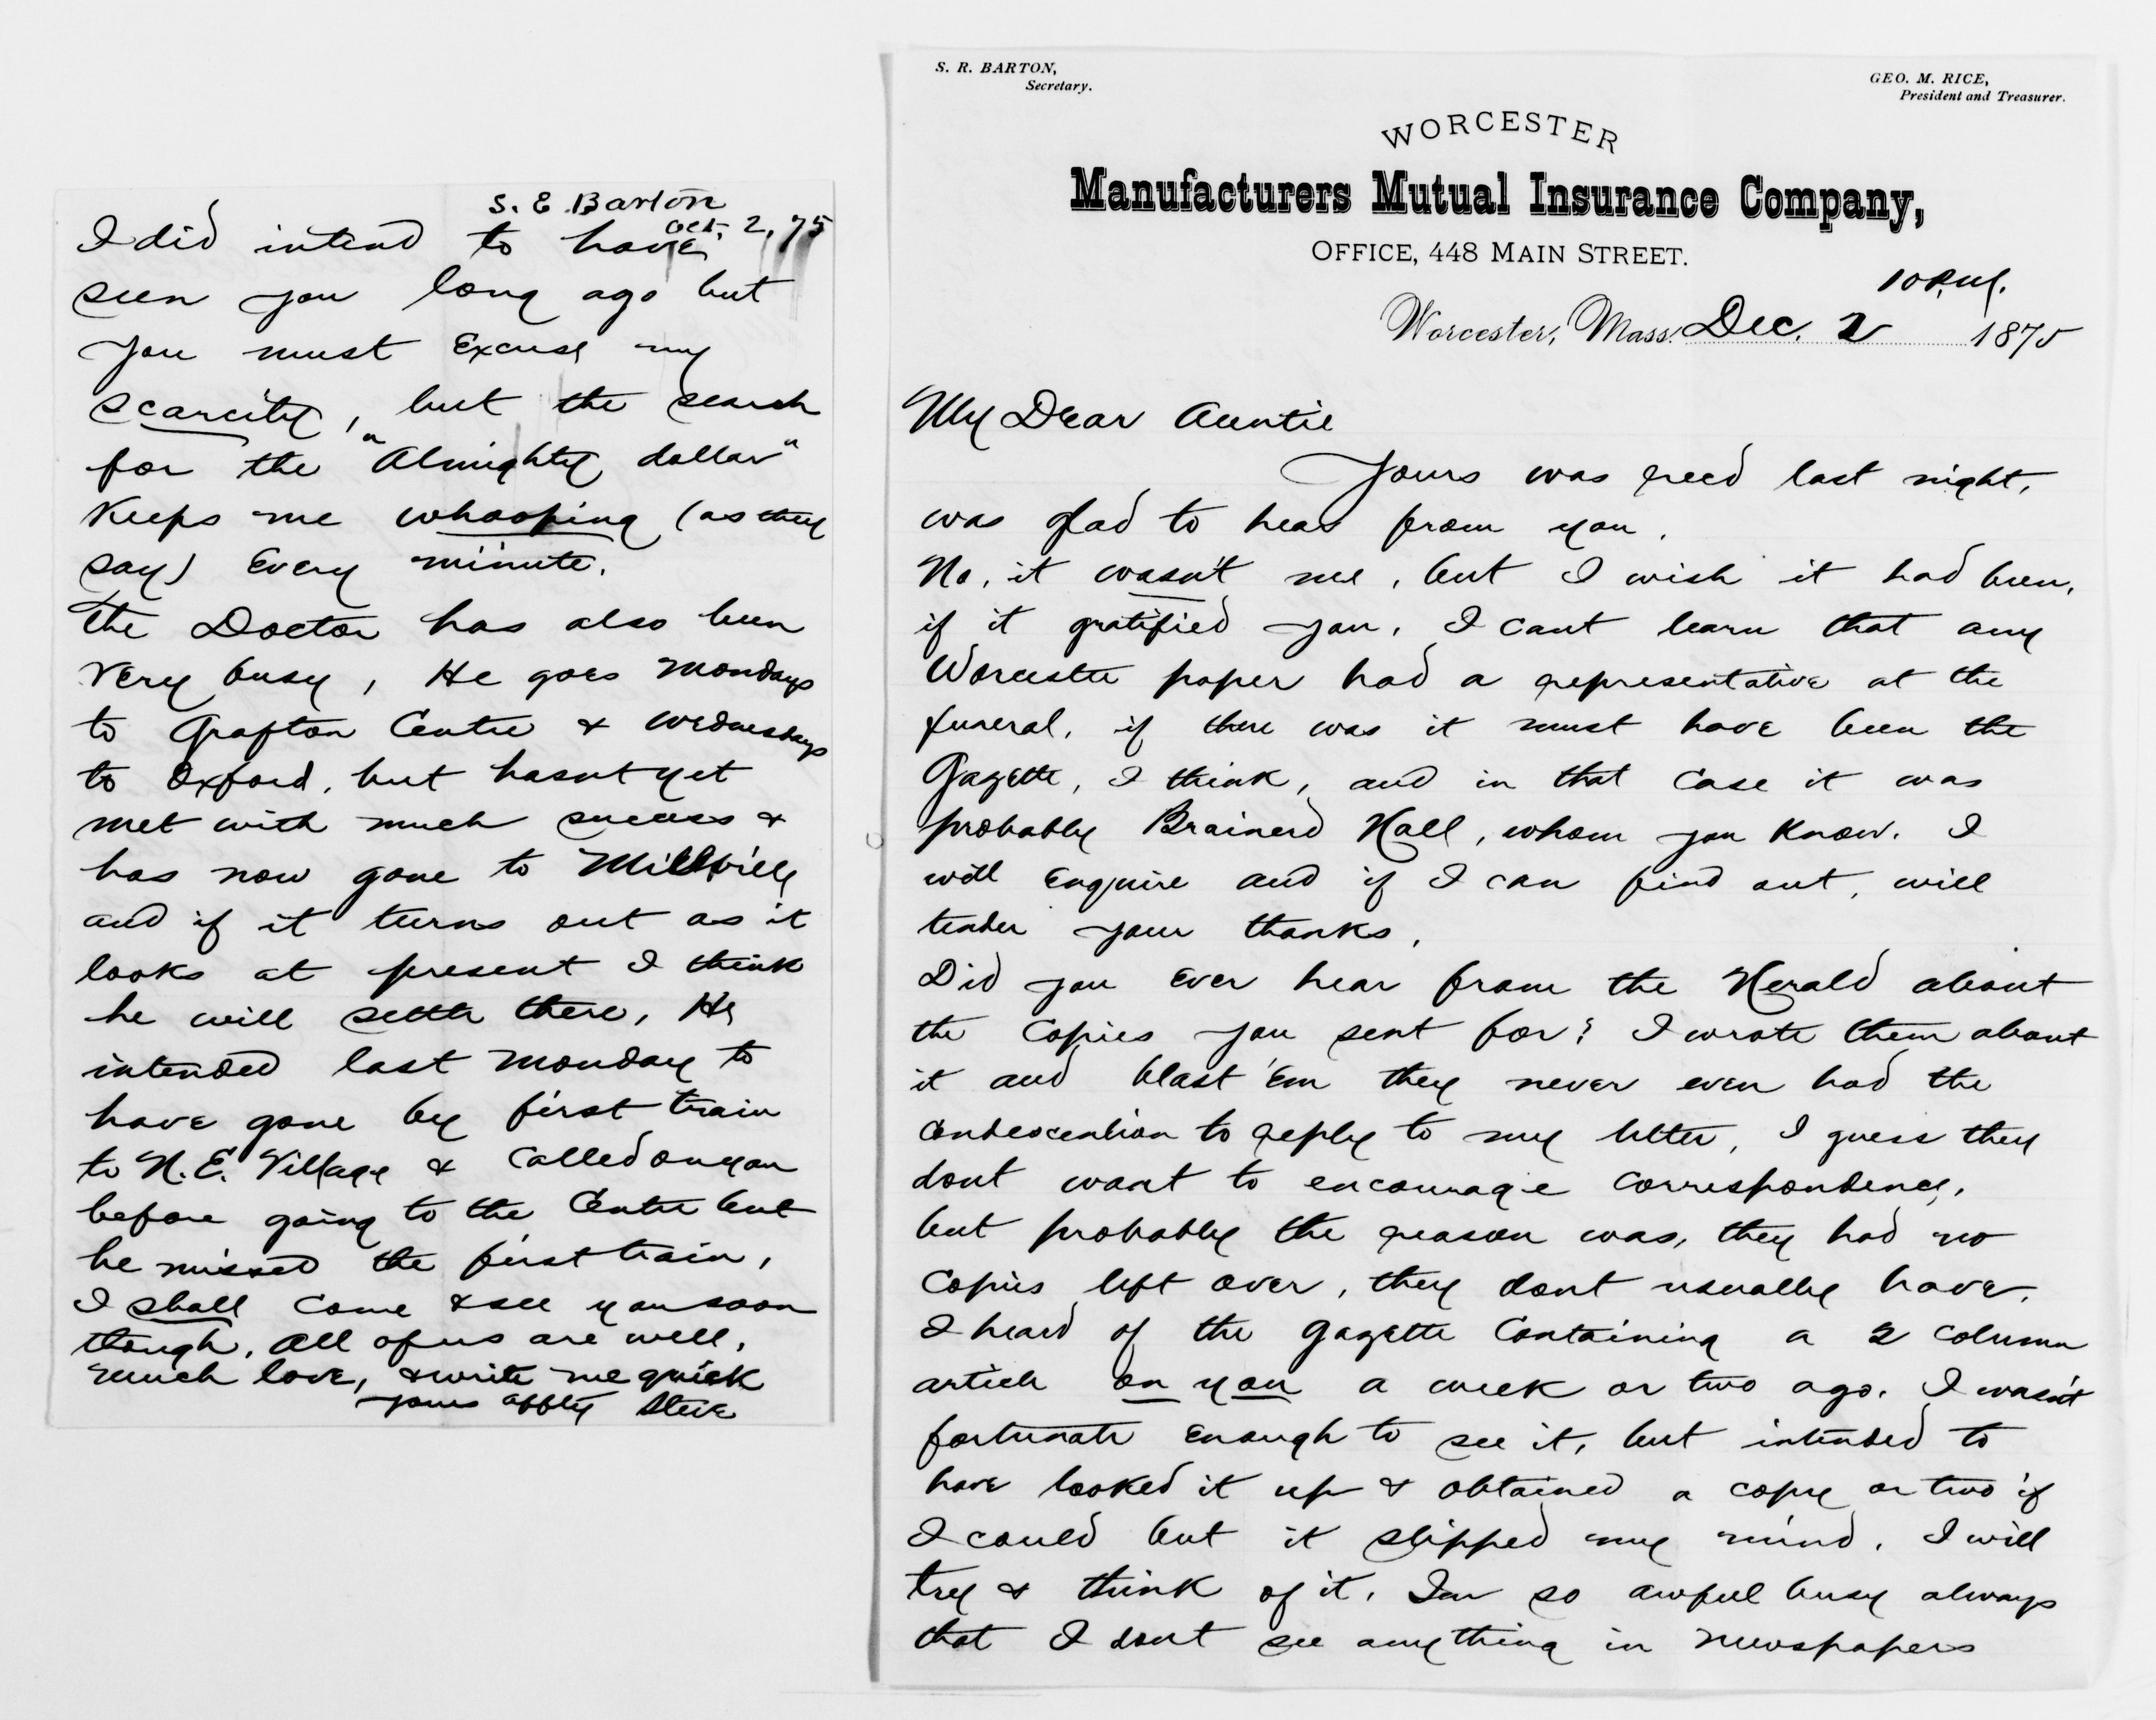 S. E Barton
Oct. 2, 75
I did intend to have
seen you long ago but
you must Excuse my
scarcity, but the search
for the "Almighty dollar"
Keeps me whooping (as they
say) Every minute.
The Doctor has also been
very busy, He goes Mondays
to Grafton Centre & Wednesdays
to Oxford, but hasnt yet
met with much success &
has now gone to Millville
and if it turns out as it
looks at present I think
he will settle there, He
intended last Monday to
have gone by first train
to N. E. Village & Called on you
before going to the Centre but
he missed the first train,
I shall come & see you soon
though, All of us are well,
much love, & write me quick
yours affly Steve
S. R. BARTON,
Secretary.
GEO. M. RICE,
President and Treasurer.
WORCESTER
Manufacturers Mutual Insurance Company,
OFFICE, 448 MAIN STREET.
10 P.M.
Worcester, Mass. Dec. 2 1875
My Dear Auntie
Yours was recd last night,
was glad to hear from you.
No, it wasn't me, but I wish it had been,
if it gratified you. I cant learn that any
Worcester paper had a representative at the
funeral, if there was it must have been the
Gazette, I think, and in that Case it was
probably Brainerd Hall, whom you Know. I
will Enquire and if I can find out, will
tender your thanks.
Did you Ever hear from the Herald about
the Copies you sent for? I wrote them about
it and blast 'Em they never even had the
Condescention to reply to my letter, I guess they
dont want to encourage Correspondence,
but probably the reason was, they had no
Copies left over, they dont usually have.
I heard of the Gazette Containing a 2 column
article on you a week or two ago. I wasn't
fortunate Enough to see it, but intended to
have looked it up & obtained a copy or two if
I could but it slipped my mind. I will
try & think of it. Im so awful busy always
that I dont see anything in Newspapers